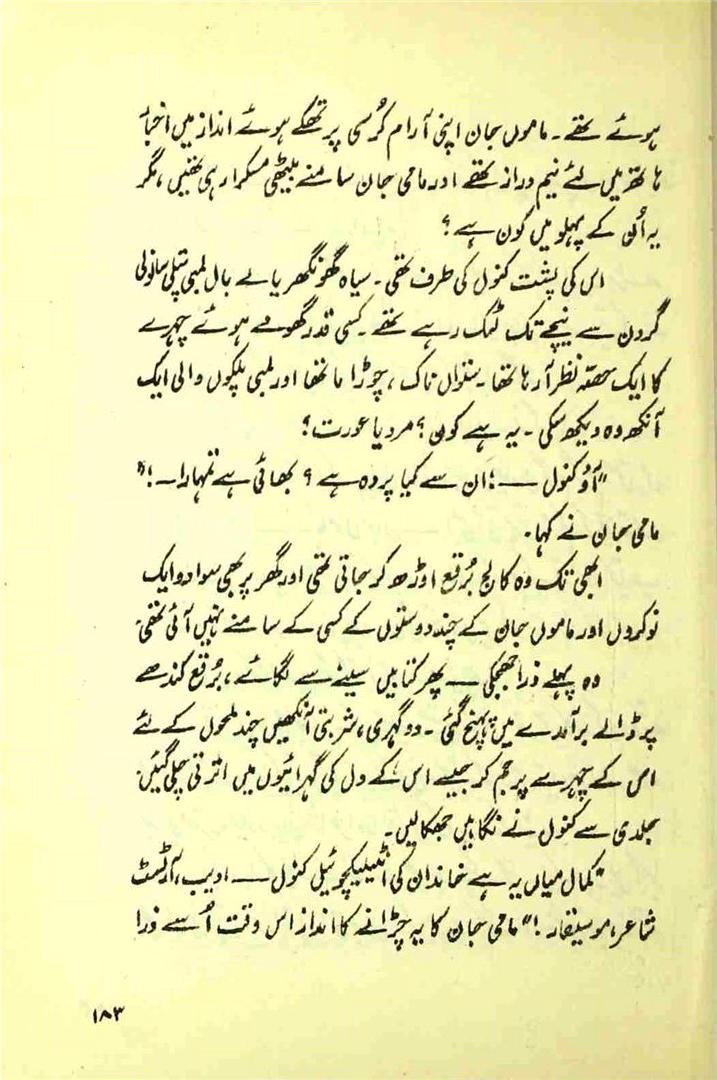 ہوئے تھے۔ ماموں جان اپنی آرام کُرسی پر تھکے ہوئے انداز میں اخبار
ہاتھ میں لئے نیم دراز تھے اور مامی جان سامنے بیٹھی مسکرا رہی تھیں، مگر
یہ اُن کے پہلو میں کون ہے؟
اس کی پشت کنول کی طرف تھی۔ سیاہ گھونگھریالے بال لمبی پتلی سانولی
گردن سے نیچے تک لٹک رہے تھے۔ کسی قدر گھومے ہوئے چہرے
کا ایک حصّہ نظر آرہا تھا۔ ستواں ناک، چوڑا ماتھا اور لمبی پلکوں والی ایک
آنکھ وہ دیکھ سکی۔ یہ ہے کون؟ مرد یا عورت؟
"آؤ کنول — اِن سے کیا پردہ ہے؟ بھائی ہے تمہارا۔!"
مامی جان نے کہا۔
ابھی تک وہ کالج بُرقع اوڑھ کر جاتی تھی اور گھر پر بھی سوا دو ایک
نوکروں اور ماموں جان کے چند دوستوں کے کسی کے سامنے نہیں آئی تھی۔
وہ پہلے ذرا جھجکی — پھر کتابیں سینے سے لگائے، بُرقع کندھے
پر ڈالے برآمدے میں پہنچ گئی۔ دو گہری، شربتی آنکھیں چند لمحوں کے لئے
اس کے چہرے پر جم کر جیسے اس کے دل کی گہرائیوں میں اترتی چلی گئیں۔
جلدی سے کنول نے نگاہیں جھکالیں۔
"کمال میاں یہ ہے خاندان کی انٹیلیکچوئیل کنول — ادیب، آرٹسٹ
شاعر، موسیقار!" مامی جان کا یہ چڑانے کا انداز اس وقت اُسے ذرا
۱۸۳